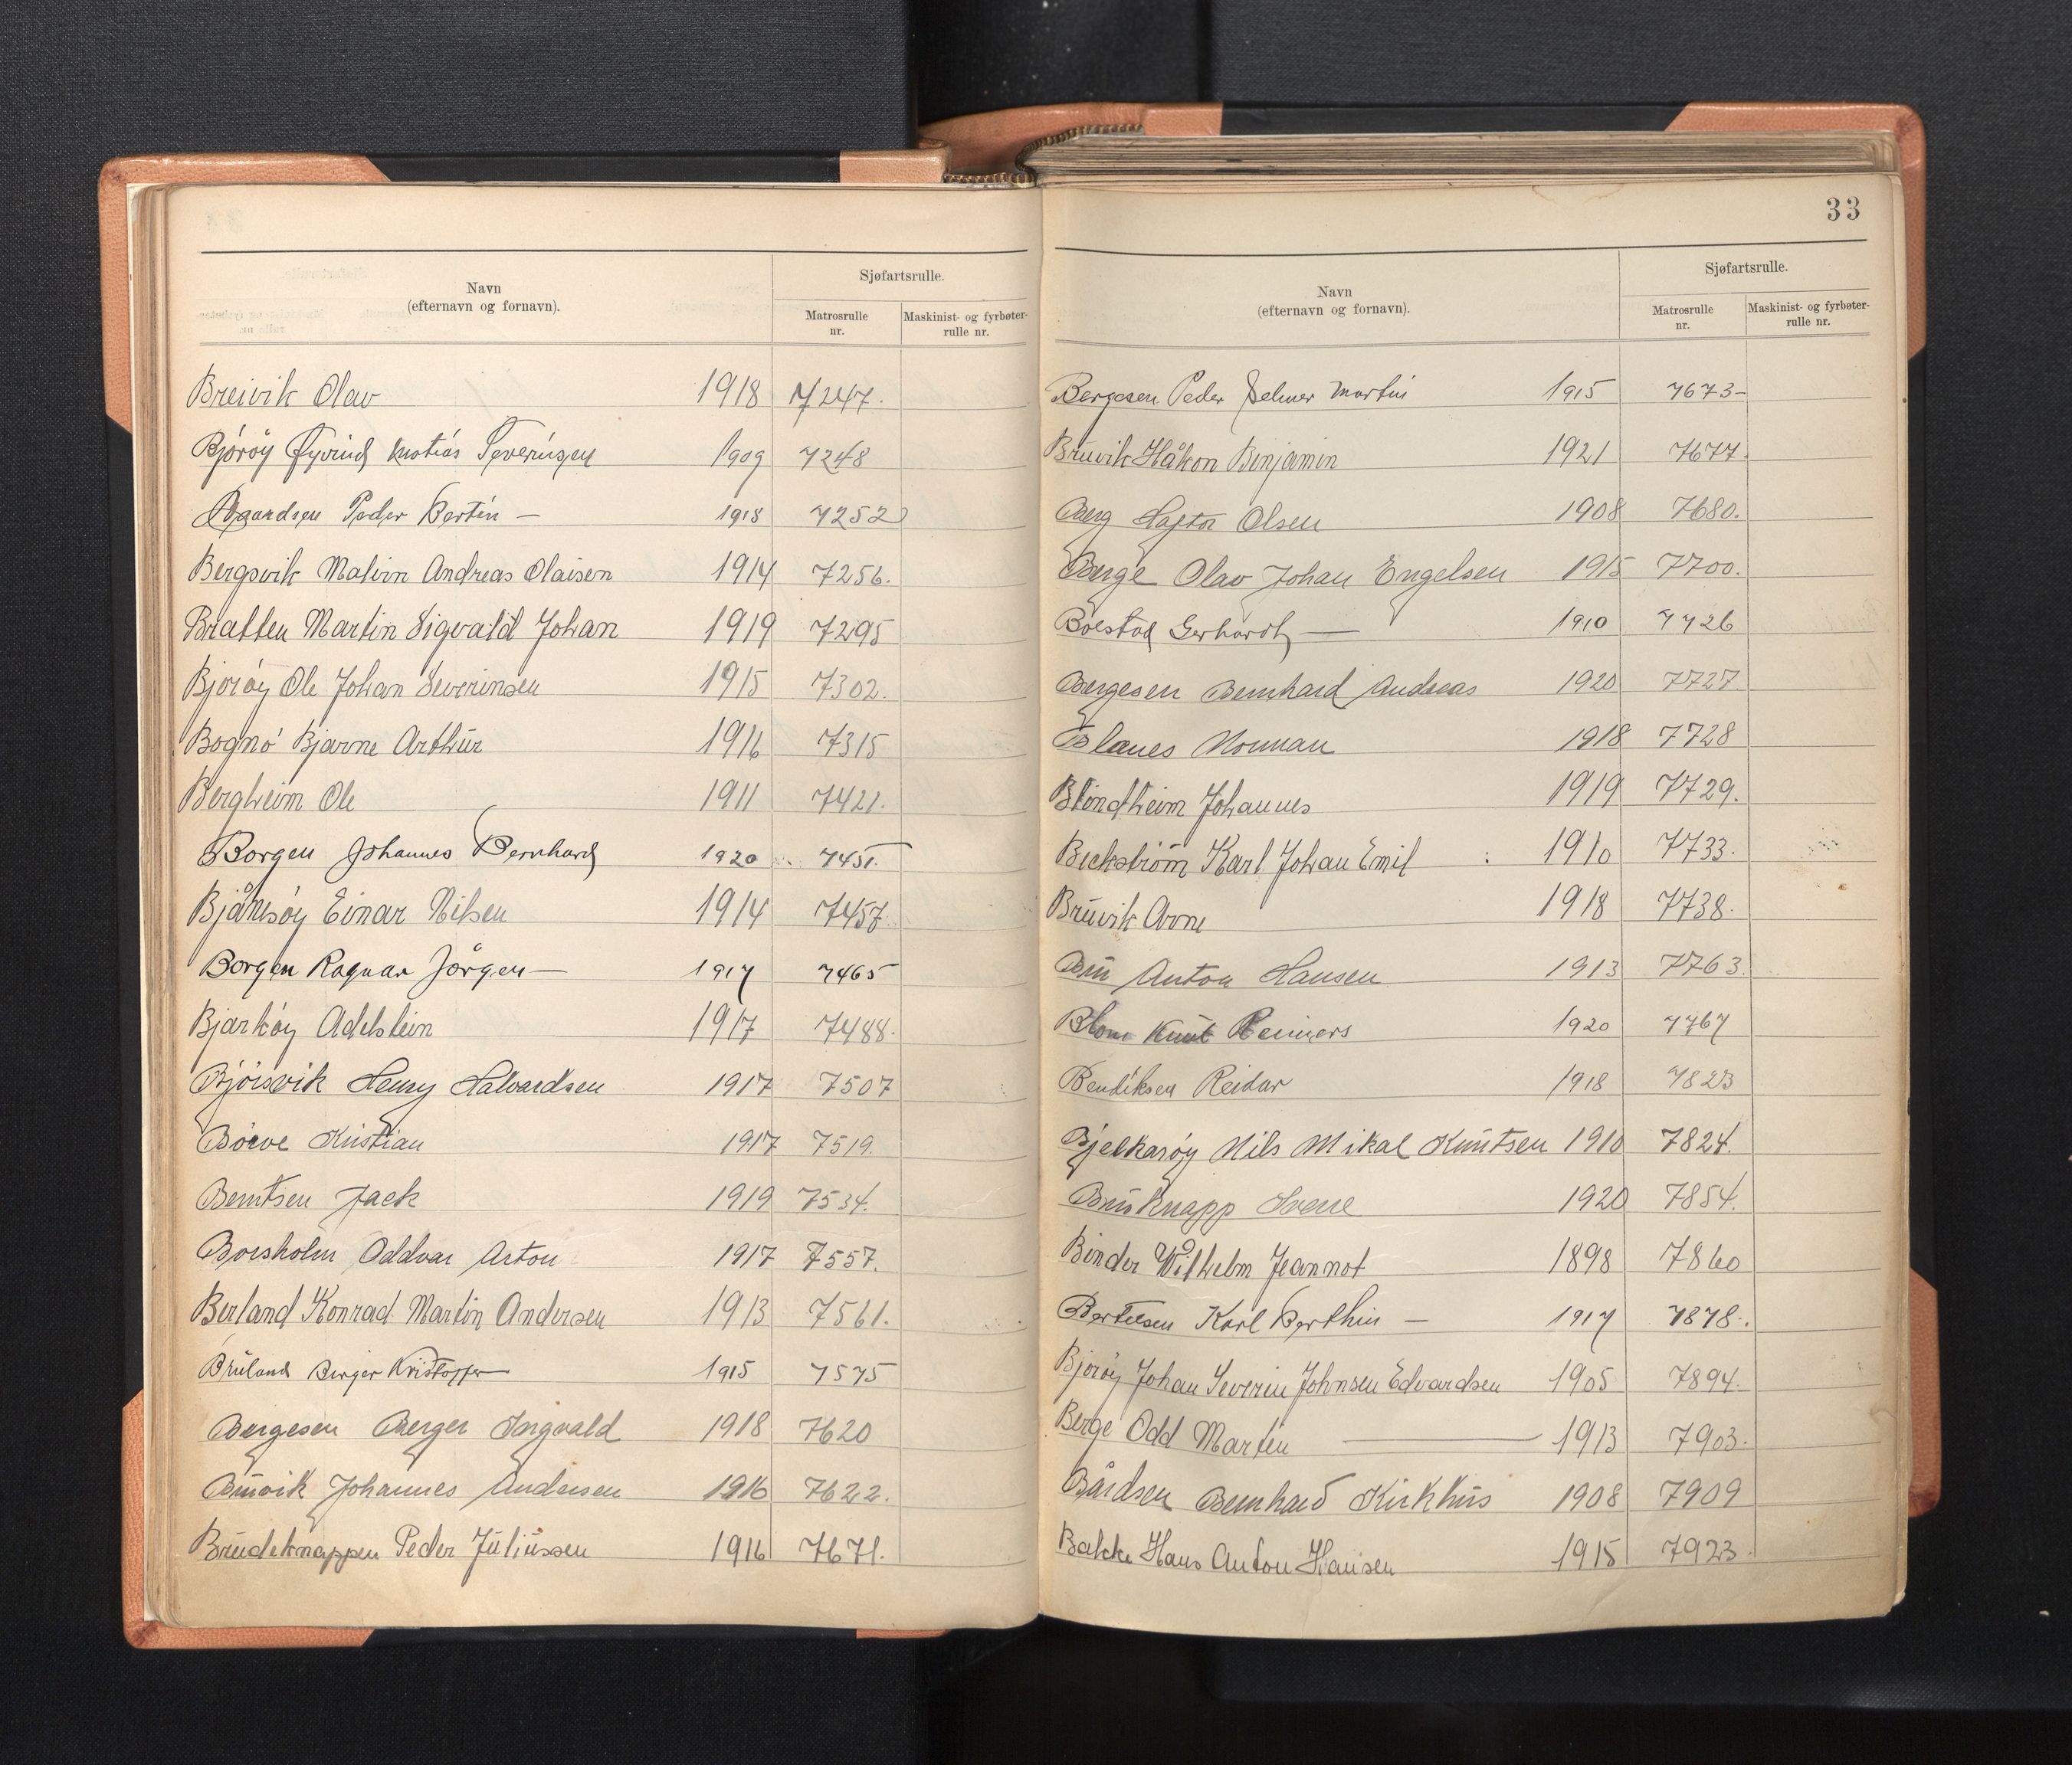 Navn
(efternavn og fornavn).
Sjøfartsrulle.
Matrosrulle
nr.
Maskinist- og fyrbøter-
rulle nr.
Breivik Olav 1918 7247.
Bjórøy Øyvind Matias Severinsen 1909 7248
Peder Bertin — 1918 7252
Bergsvik Malvin Andreas Olaisen 1914 7256.
Bratten Martin Sigvald Johan 1919 7295
Bjorøy Ole Johan Severinsen 1915 7302.
Bognó Bjarne Arthur 1916 7315
Bergheim Ole 1911 7421.
Borgen Johannes Bernhard 1920 7451.
Bjånesøy Einar Nilsen 1914 7457.
Borgen Ragnar Jørgen — 1917 7465
Bjarkøy Adelstein 1917 7488.
Bjórsvik Henry Halvardsen 1917 7507
Börve Kristian 1917 7519.
Berntsen Jack 1919 7534.
Borsholm Oddvar Anton 1917 7557.
Berland Konrad Martin Andersen 1913 7561.
Bruland Birger Kristoffer — 1915 7575
Bergesen Berger Ingvald 1918 7620
Bruvik Johannes Andersen 1916 7622.
Brudeknappen Peder Juliussen 1916 7671.
33
Navn
(efternavn og fornavn).
Sjøfartsrulle.
Matrosrulle
nr.
Maskinist- og fyrbøter-
rulle nr.
Bergesen Peder Selmer Martin 1915 7673-
Bruvik Håkon Benjamin 1921 7677.
Berg Olsen 1908 7680.
Berge Olav Johan Engelsen 1915 7700.
Bolstad Gerhardt — 1910 7726
Bergesen Bernhard Andreas 1920 7727
Blanes Norman 1918 7728
Blindheim Johannes 1919 7729.
Beckström Karl Johan Emil 1910 7733.
Bruvik Arne 1918 7738.
Bru Anton Hansen 1913 7763.
Blom Knut Reimers 1920 7767
Bendiksen Reidar 1918 7823
Bjelkarøy Nils Mikal Knutsen 1910 7824.
Bruknapp Sverre 1920 7854.
Binder Wilhelm Jeannot 1898 7860
Bertelsen Karl Berthin — 1917 7878.
Bjorøy Johan Severin Johnsen Edvardsen 1905 7894.
Berge Odd Martin — 1913 7903.
Bårdsen Bernhard Kirkhus 1908 7909
Bakke Hans Anton Hansen 1915 7923.